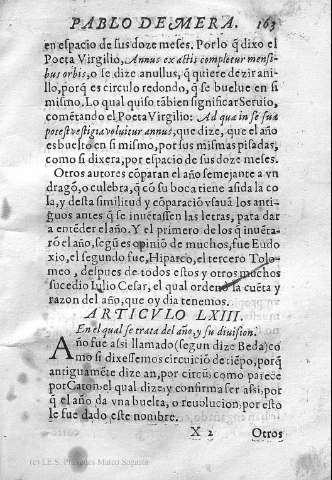 PABLO DE MERA. 163
en espacio de sus doze meses. Por lo q̃ dixo el
Poeta Virgilio, Annus exactis completur mensi
bus orbis, o se dize anullus, q̃ quiere dezir ani-
llo, porq̃ es circulo redondo, q̃ se buelue en si
mismo. Lo qual quiso tãbien significar Seruio,
comẽtando el Poeta Virgilio: Ad qua in se sua
potest vestigia voluitur annus, que dize, que el año
es buelto en si mismo, por sus mismas pisadas,
como si dixera, por espacio de sus doze meses.
Otros autores cõparan el año semejante a vn
dragõ, o culebra, q̃ cõ su boca tiene asida la co
la, y desta similitud y cõparaciõ vsauã los anti-
guos antes q̃ se inuẽtassen las letras, para dar
a entẽder el año. Y el primero de los q̃ inuẽta-
rõ el año, segũ es opiniõ de muchos, fue Eudo
xio, el segundo fue, Hiparco, el tercero Tolo-
meo, despues de todos estos y otros muchos
sucedio Iulio Cesar, el qual ordenò la cuẽta y
razon del año, que oy dia tenemos.
ARTICVLO LXIII.
En el qual se trata del año, y su diuision.
Año fue assi llamado (segun dize Beda) co
mo si dixessemos circuiciõ de tiẽpo, porq̃
antiguamẽte dize an, por circũ, como parece
por Caton, el qual dize, y confirma ser assi, por
q̃ el año da vna buelta, o reuolucion, por esto
le fue dado este nombre.
X 2 Otros
(c) I.E.S. Práxedes Mateo Sagasta